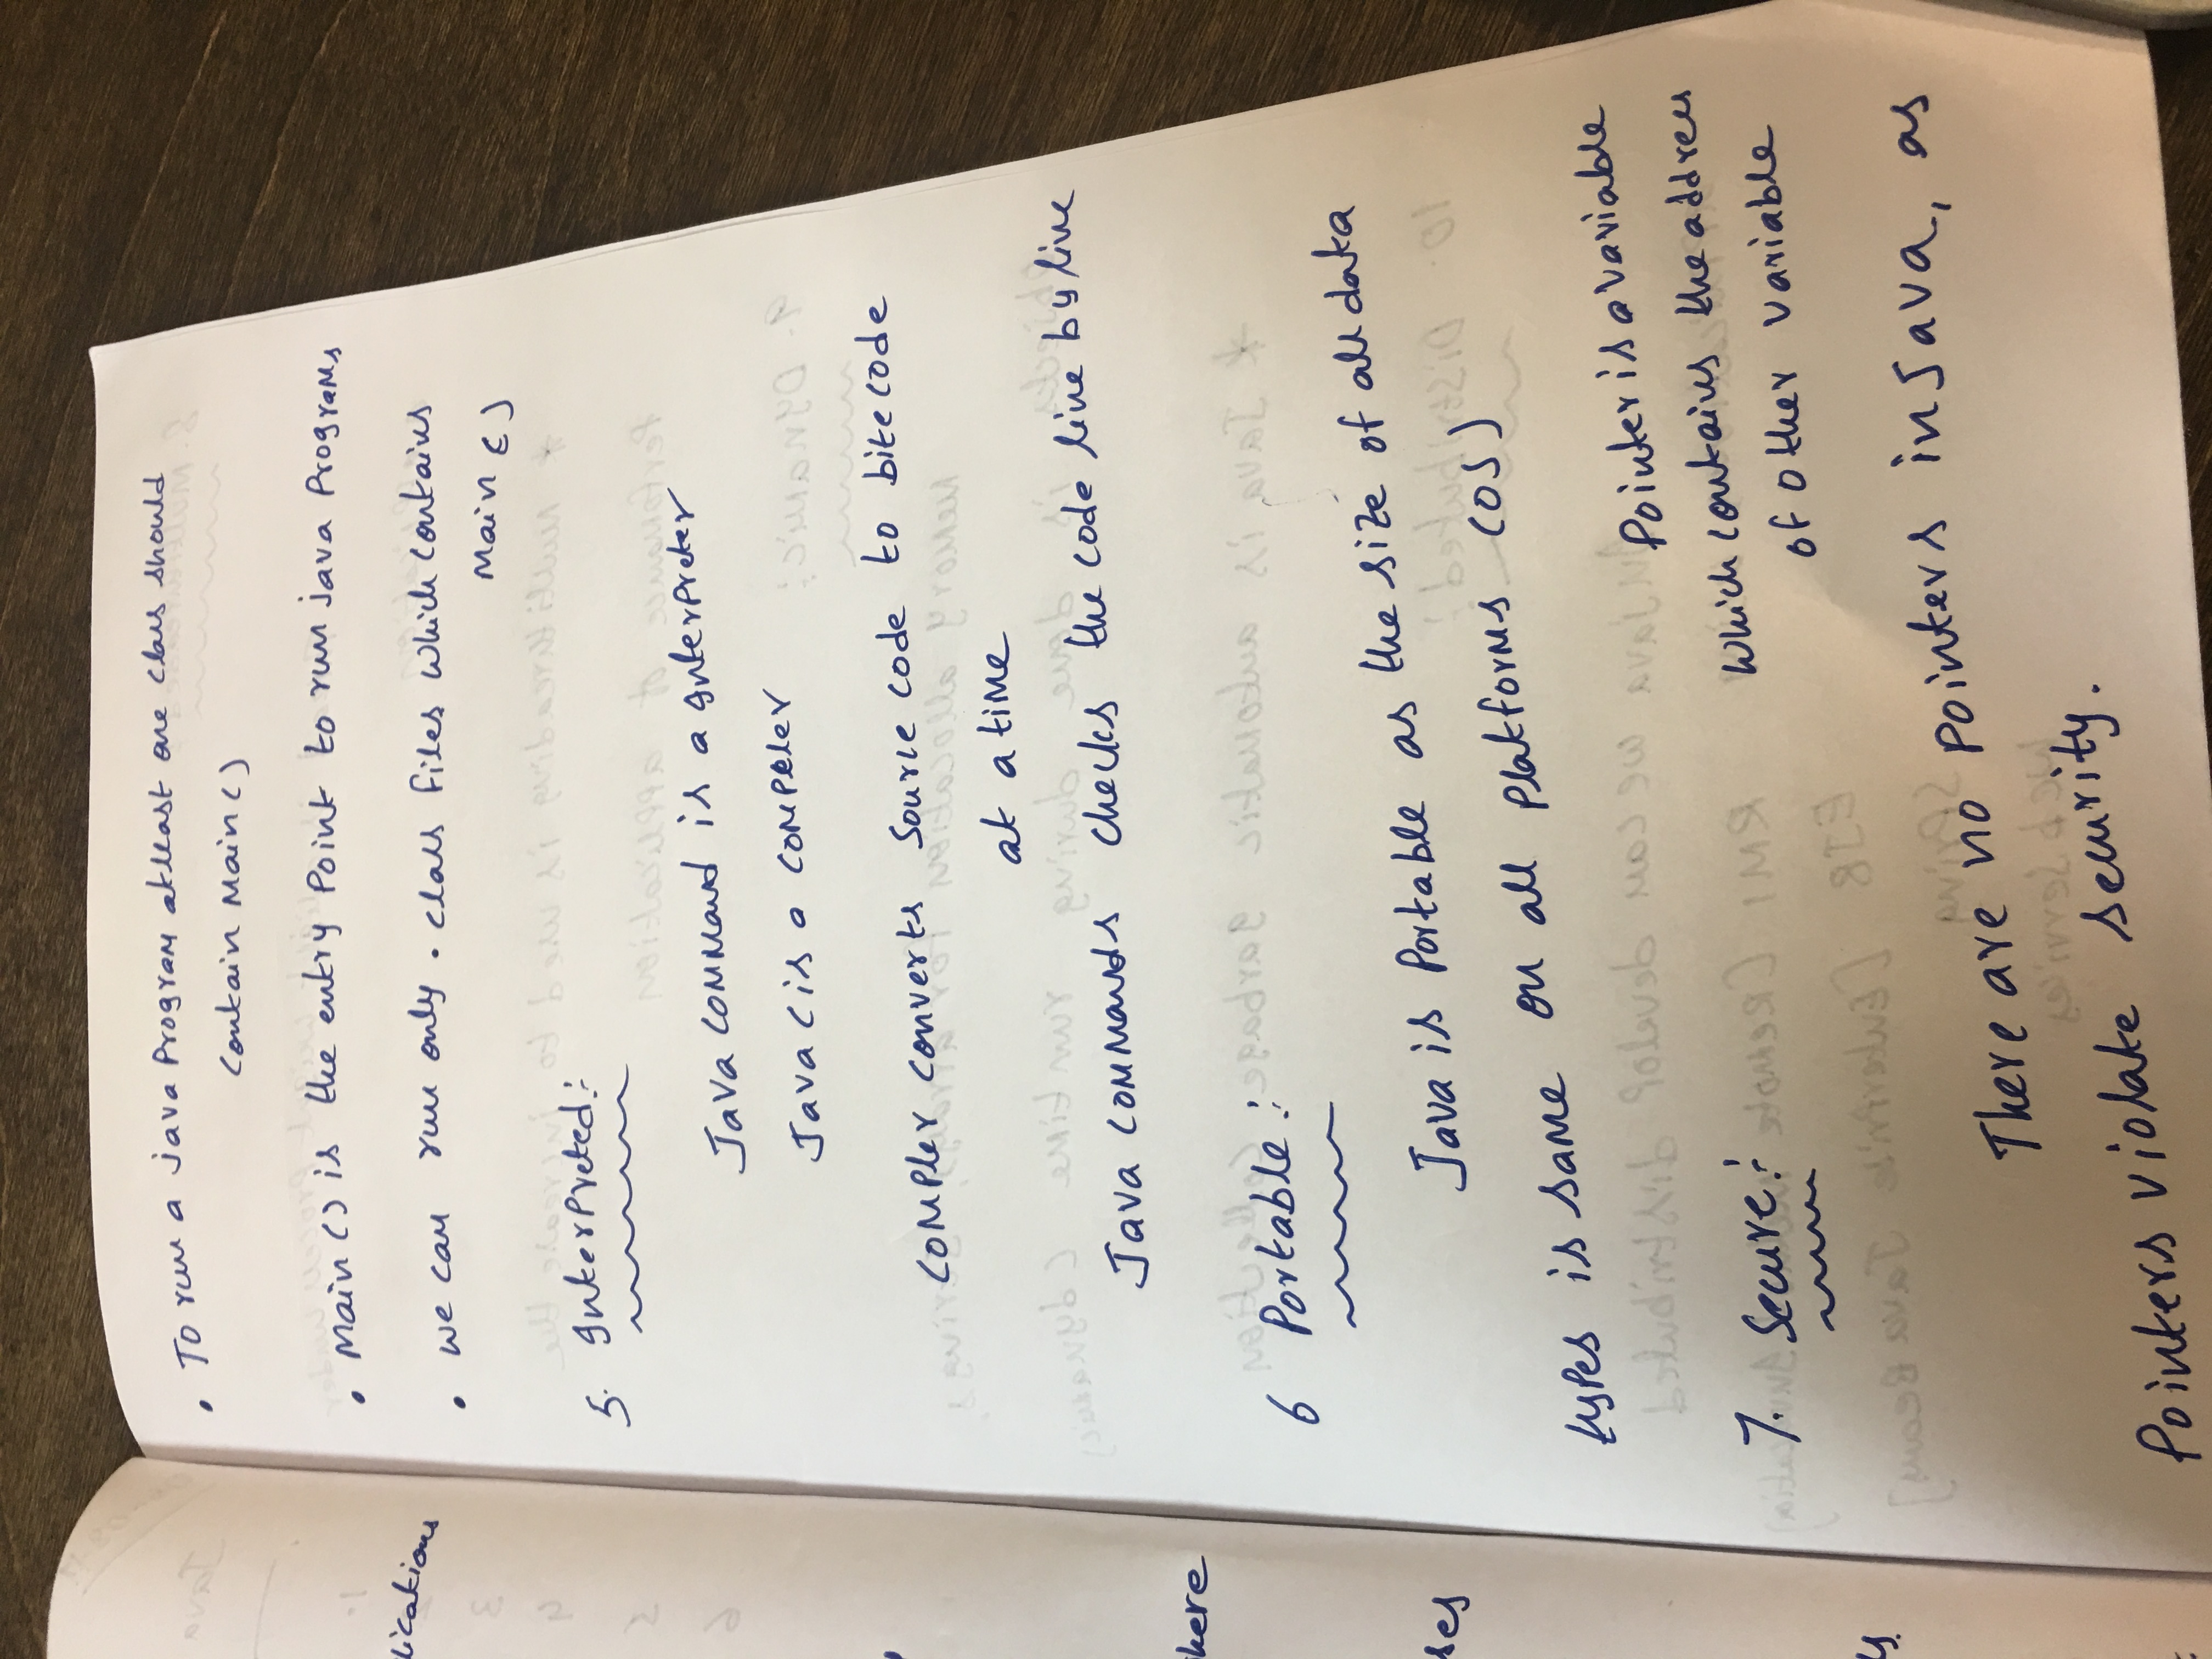 • To run a java Program atleast one class should
Contain Main()
• Main() is the entry Point to run java Programs
• we can run only .class files which contains
Main()
5. Interpreted:
Java command is a Interpreter
Java C is a compeler
compler converts source code to bitecode
at a time
Java commands checks the code line by line
6 Portable:
Java is Portable as the size of all data
types is same on all Platforms (OS)
Pointer is a variable
which contains the address
of other variable
7. Secure:
There are no Pointers in Java, as
Pointers violate security.
lications
here
ses